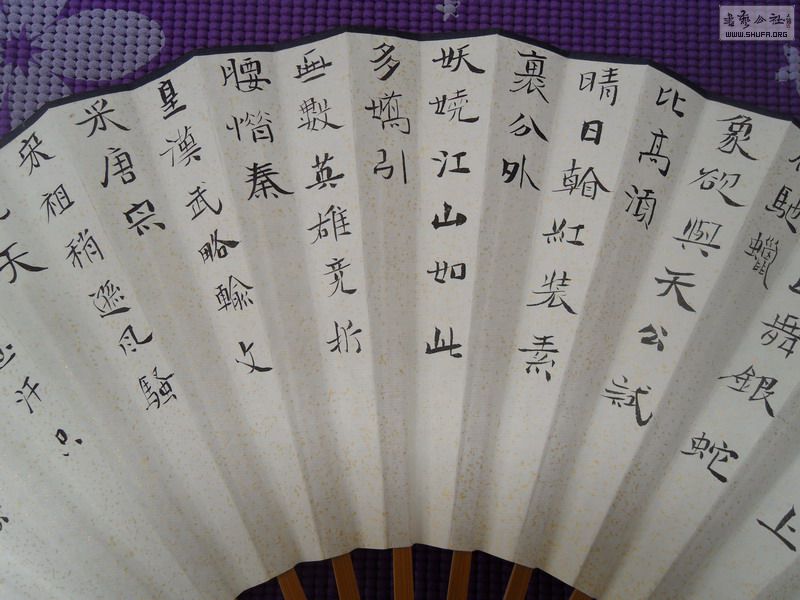 上
舞銀蛇
馳蠟
象欲與天公試
比高須
晴日翰紅裝素
裹分外
妖嬈江山如此
多嬌引
無數英雄竟折
腰惜秦
皇漢武略輸文
采唐宗
宋祖稍遜風騷
天
汗只
書藝公社
WWW.SHUFA.ORG